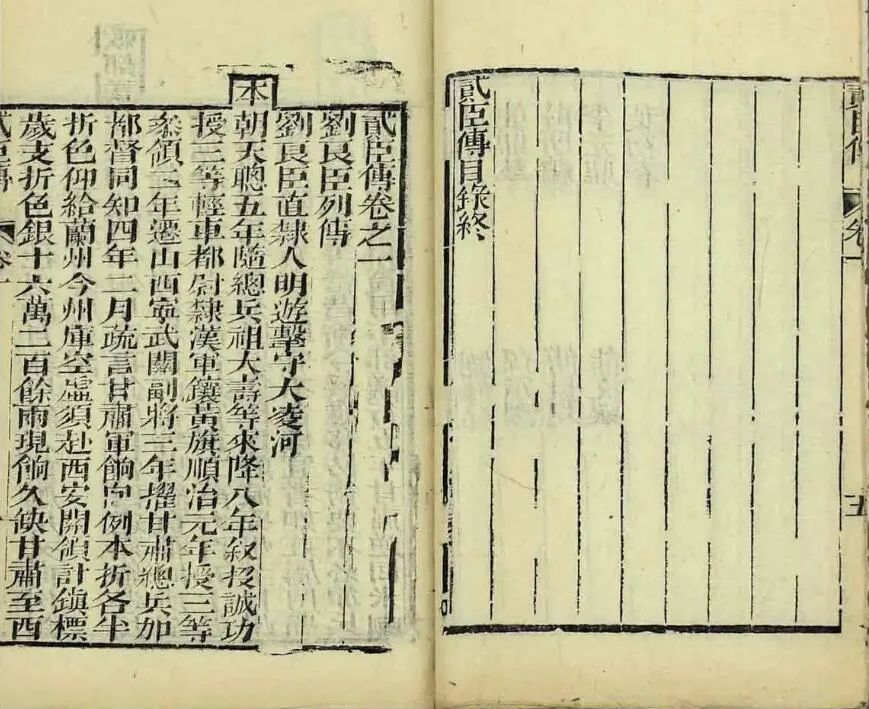 貳臣傳 卷一 五
貳臣傳目錄終
貳臣傳卷之一
劉良臣列傳
劉良臣直隸人明遊擊守大凌河
本朝天聰五年隨總兵祖大壽等來降八年叙投誠功
授三等輕車都尉隸漢軍鑲黃旗順治元年授三等
叅領二年遷山西寧武關副將三年擢甘肅總兵加
都督同知四年二月疏言甘肅軍餉向例本折各半
折色仰給蘭州今州庫空虛須赴西安關領計鎮標
歲支折色銀十六萬二百餘兩現餉久缺甘肅至西
貳臣傳 卷一